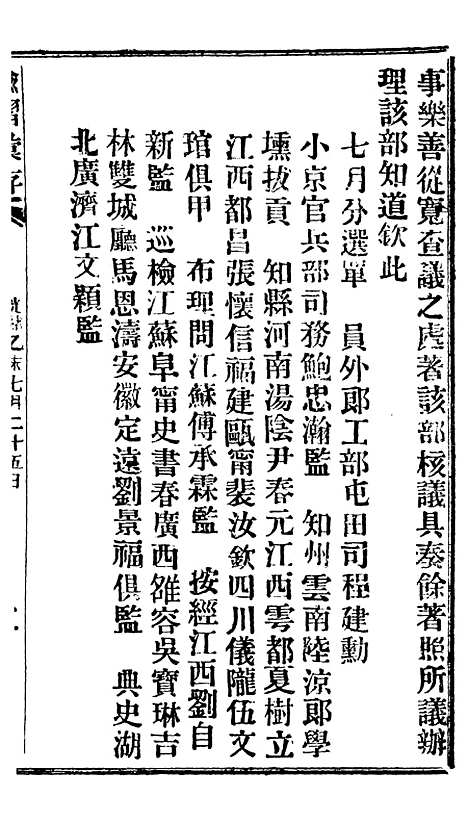 事樂善從寬查議之處著該部核議具奏餘著照所議辦
理該部知道欽此
七月分選單　員外郎工部屯田司程建勳
小京官兵部司務鮑忠瀚監　知州雲南陸涼郎學
壎拔貢　知縣河南湯陰尹春元江西雩都夏樹立
江西都昌張懷信福建甌甯裴汝欽四川儀隴伍文
琯俱甲　布理問江蘇傅承霖監　按經江西劉自
新監　巡檢江蘇阜甯史書春廣西雒容吳寶琳吉
林雙城廳馬恩濤安徽定遠劉景福俱監　典史湖
北廣濟江文顯監
諭摺彙存
光緒乙未七月二十五日